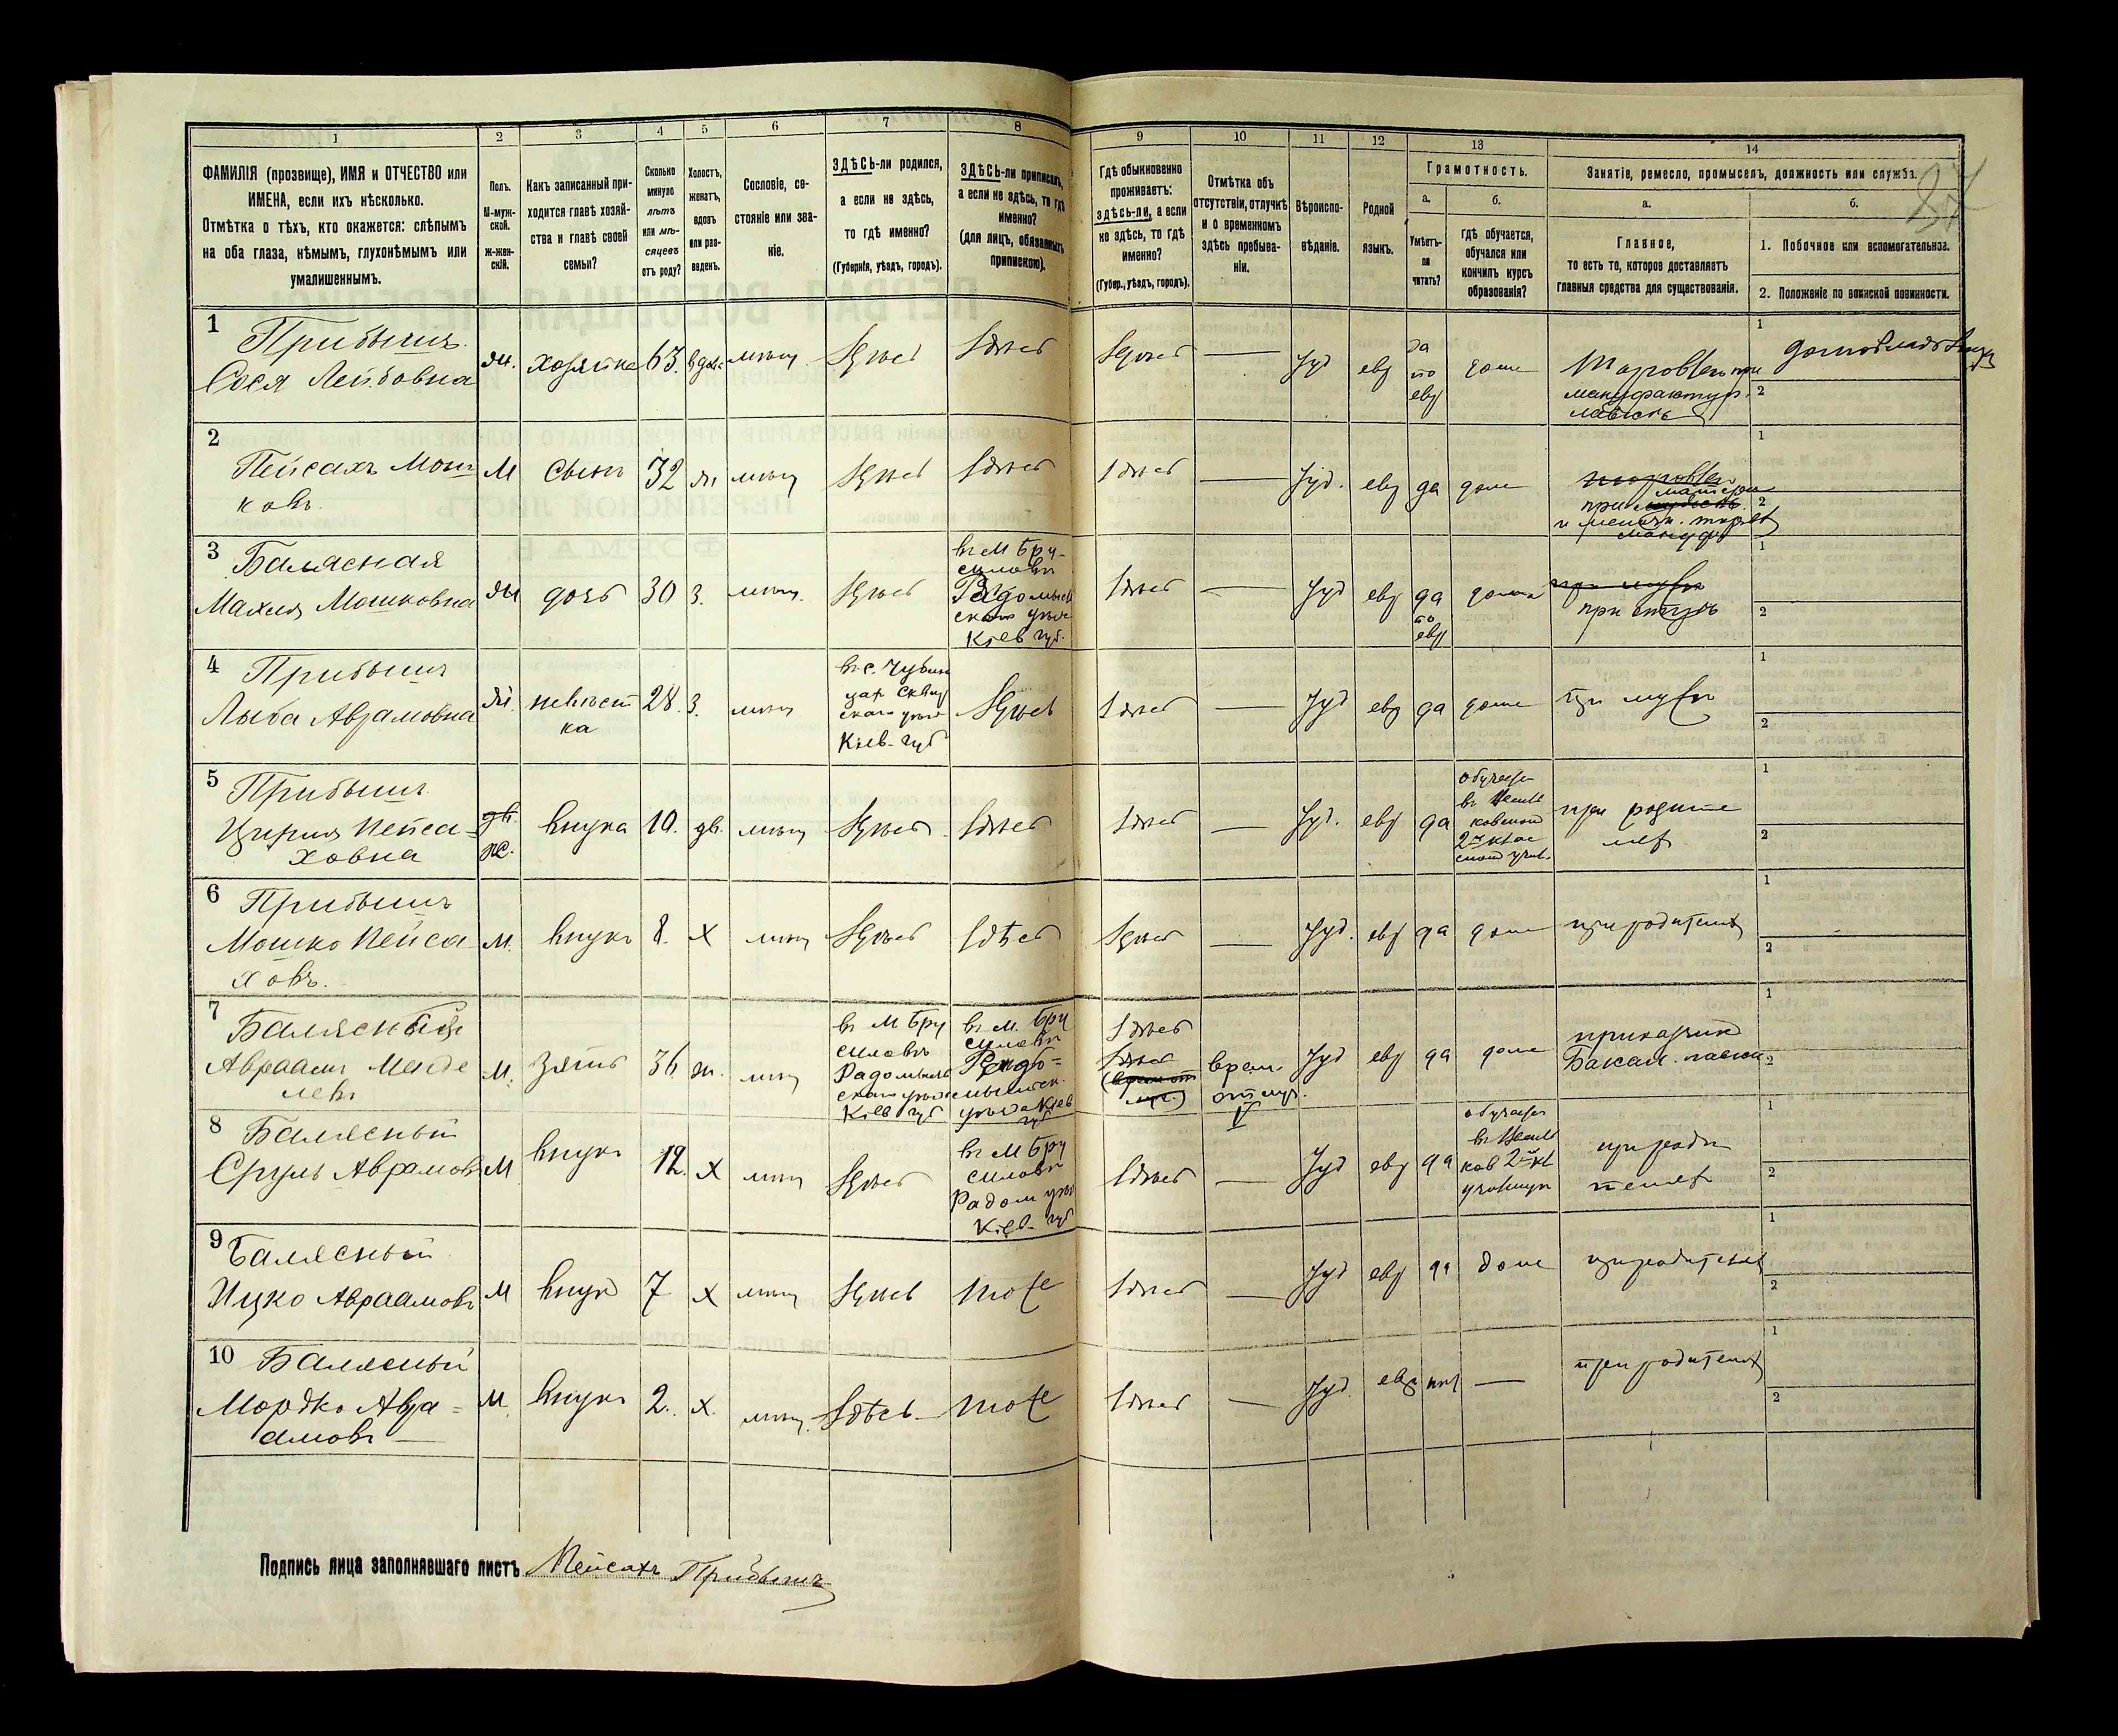 1
2
3
4
5
6
7
8
9
10
11
12
13
14
ФАМИЛІЯ (прозвище), ИМЯ и ОТЧЕСТВО или
ИМЕНА, если ихъ нѣсколько.
Отмѣтка о тѣхъ, кто окажется: слѣпымъ
на оба глаза, нѣмымъ, глухонѣмымъ или
умалишеннымъ.
Полъ.
М-муж-
ской.
Ж-жен-
скій.
Какъ записанный при-
ходится главѣ хозяй-
ства и главѣ своей
семьи?
Сколько
минуло
лѣтъ
или мѣ-
сяцевъ
отъ роду?
Холостъ,
женатъ,
вдовъ
или раз-
веденъ.
Сословіе, со-
стояніе или зва-
ніе.
ЗДѢСЬ-ли родился,
а если не здѣсь,
то гдѣ именно?
(Губернія, уѣздъ, городъ).
ЗДѢСЬ-ли приписанъ,
а если не здѣсь, то гдѣ
именно?
(для лицъ, обязанныхъ
припискою).
Гдѣ обыкновенно
проживаетъ:
здѣсь-ли, а если
не здѣсь, то гдѣ
именно?
(Губер., уѣздъ, городъ).
Отмѣтка объ
отсутствіи, отлучкѣ
и о временномъ
здѣсь пребыва-
ніи.
Вѣроиспо-
вѣданіе.
Родной
языкъ.
Грамотность.
а.
Умѣетъ-
ли
читать?
б.
Гдѣ обучается,
обучался или
кончилъ курсъ
образованія?
Занятіе, ремесло, промыселъ, должность или служба.
а.
Главное,
то есть то, которое доставляетъ
главныя средства для существованія.
б.
1. Побочное или вспомогательное.
2. Положеніе по воинской повинности.
1
Прибышъ
Сося Лейбовна
ж. хозяйка 63. вдова мѣщ Здѣсь Здѣсь Здѣсь — Іуд евр да
по
евр
дома
Торговля при
мануфактур.
лавкѣ
2
Пейсахъ Мош
ковъ.
М сынъ 32 ж мѣщ Здѣсь Здѣсь Здѣсь — Іуд. евр да дома
при матери
3 Балясная
Махля Мошковна
ж дочь 30 З. мѣщ. Здѣсь
въ М Бру-
силовѣ
Радомысль
скаго уѣз.
Кіев губ.
Здѣсь — Іуд евр да
по
евр
дома
при отцѣ
4 Прибышъ
Лыба Аврамовна
ж. невѣст
ка
28. З. мѣщ
Сквир
скаго уѣз
Кіев. губ
Здѣсь Здѣсь — Іуд евр да дома при мужѣ
5 Прибышъ
Цирля Пейса-
ховна
же. внука 10. дв. мѣщ Здѣсь Здѣсь Здѣсь — Іуд. евр да
обучает
при родите
лях
6 Прибышъ
Мошко Пейса
ховъ.
м. внукъ 8. х мѣщ Здѣсь Здѣсь Здѣсь — Іуд. евр да дома при родителях
7
Балясный
Авраамъ Менде
левъ
М. зять 36 ж. мѣщ
въ М Бру
силовѣ
Радомысль
скаго уѣз
Кіев губ
въ м. Бру
силовѣ
Радо-
мысльск.
уѣзда Кіев
губ
Здѣсь
врем.
отлуч.
V
Іуд евр да дома
приказчик
Бакал. лавки
8 Балясный
Сруль Аврамовъ
М внукъ 12. х мѣщ Здѣсь
въ М Бру
силовѣ
Радом уѣз
Кіев. губ
Здѣсь — Іуд евр да
обучает
при роди
телях
9 Балясный
Ицко Авраамовъ
М внук 7 х мѣщ Здѣсь тоже Здѣсь — Іуд евр да дома при родителях
10 Балясный
Мордко Авра-
амовъ
М. внукъ 2. х. мѣщ. Здѣсь тоже Здѣсь — Іуд евр нет — при родителях
Подпись лица заполнявшаго листъ Пейсахъ Прибышъ